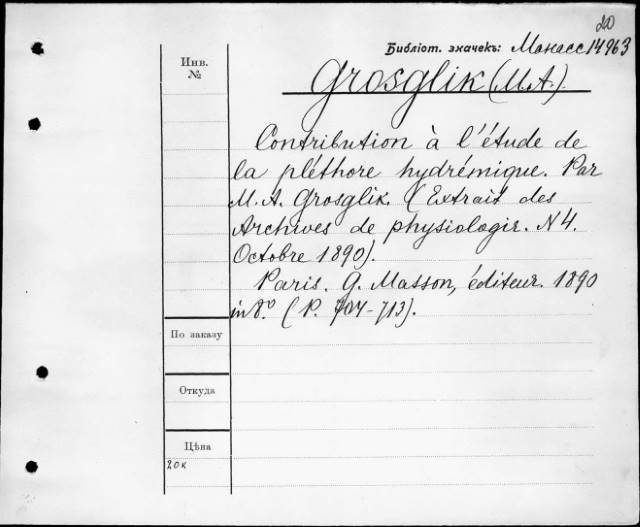 20
Библіот. значекъ: Манасс 14963
Инв.
№
Grosglik (M. A.).
Contribution à l'étude de
la pléthore hydrémique. Par
M. A. Grosglik. (Extrait des
Archives de physiologie. N 4.
Octobre 1890).
Paris. G. Masson, éditeur. 1890
in 8.º (P. 704-713).
По заказу
Откуда
Цѣна
20 к